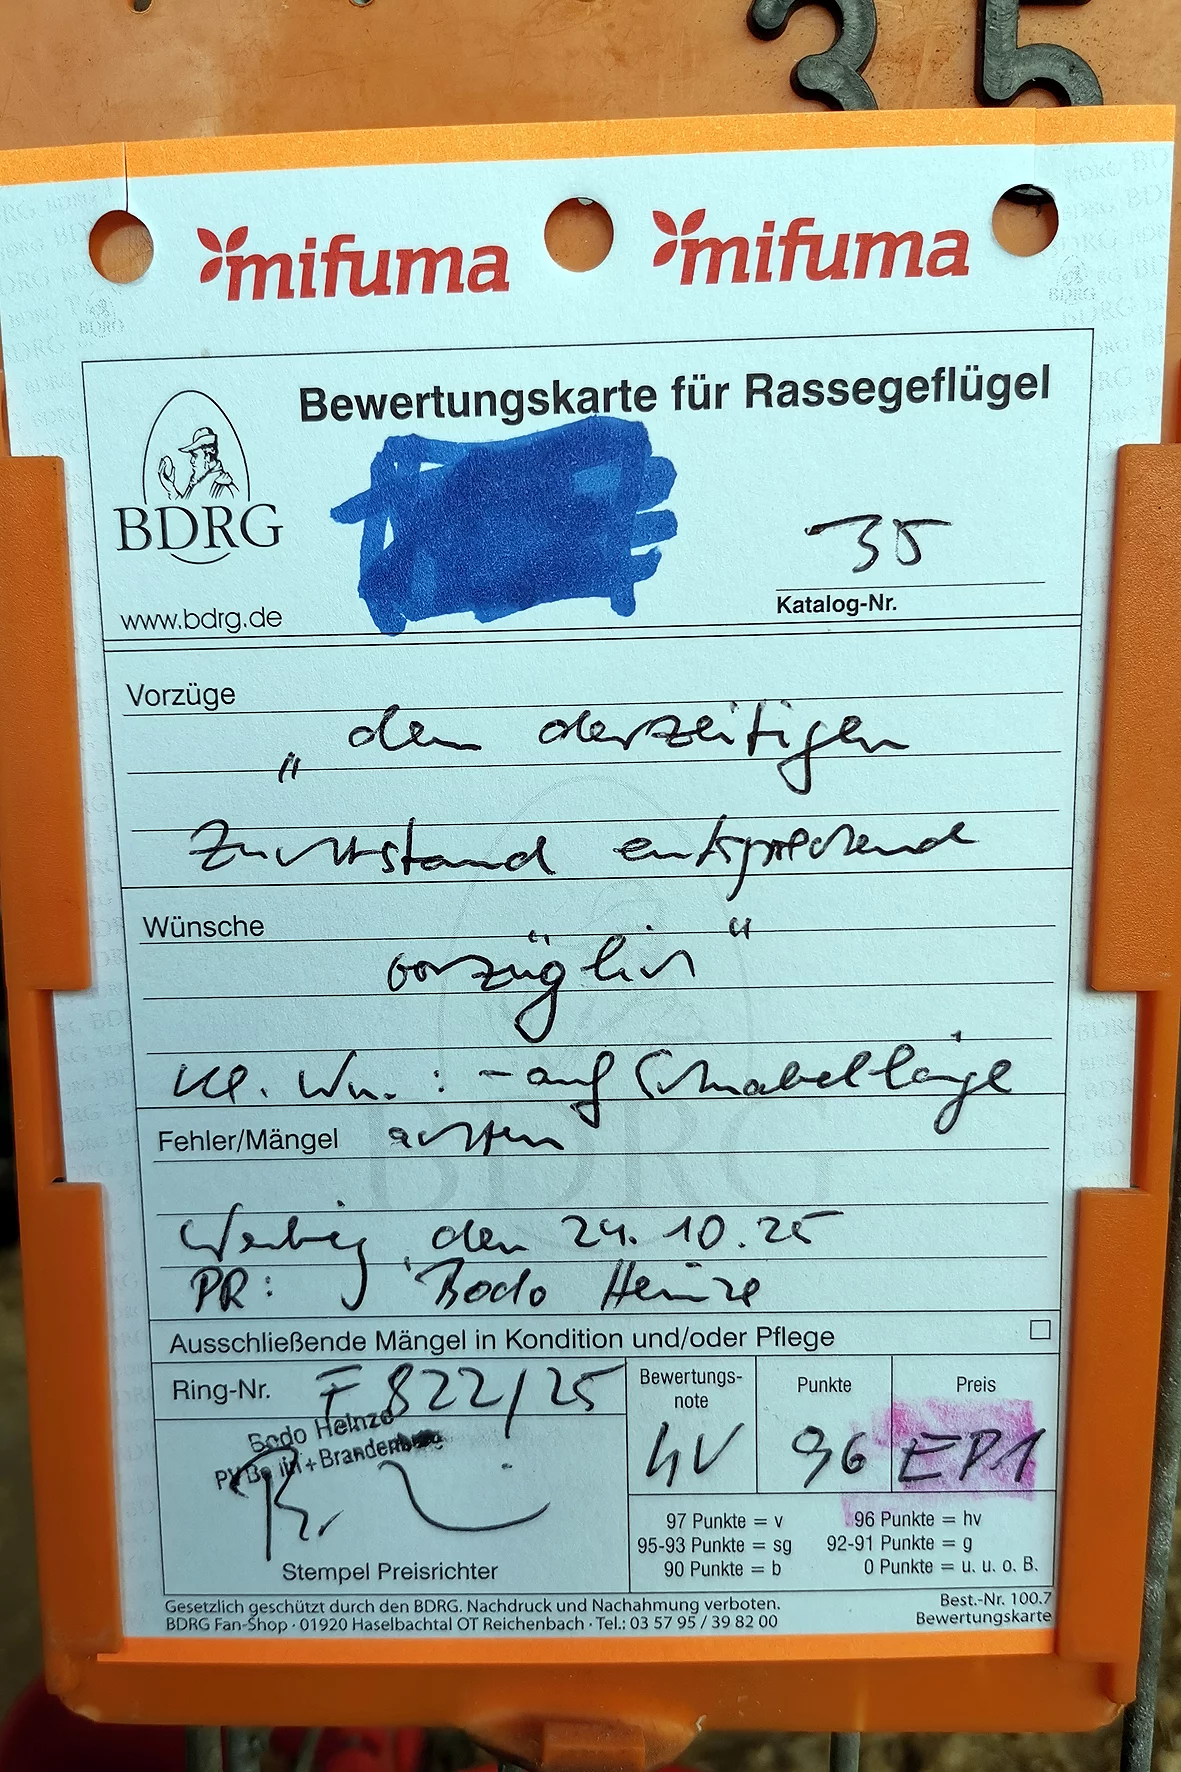 35
mifuma mifuma
Bewertungskarte für Rassegeflügel
BDRG
www.bdrg.de
35
Katalog-Nr.
Vorzüge
„den derzeitigen
Zuchtstand entsprechend
Wünsche
vorzüglich“
kl. Wu.: - auf Schnabellänge
Fehler/Mängel achten
Werbig, den 24.10.25
PR: Bodo Heinze
Ausschließende Mängel in Kondition und/oder Pflege
Ring-Nr. F 822/25
Bodo Heinze
PV Berlin+Brandenburg
Stempel Preisrichter
Bewertungs-
note
hV
Punkte
96
Preis
EP1
97 Punkte = v 96 Punkte = hv
95-93 Punkte = sg 92-91 Punkte = g
90 Punkte = b 0 Punkte = u. u. o. B.
Gesetzlich geschützt durch den BDRG. Nachdruck und Nachahmung verboten.
BDRG Fan-Shop · 01920 Haselbachtal OT Reichenbach · Tel.: 03 57 95 / 39 82 00
Best.-Nr. 100.7
Bewertungskarte